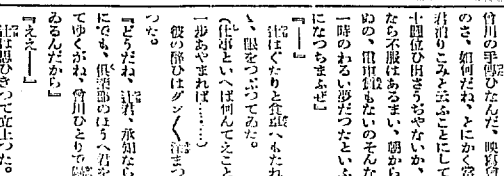 曾川の手傳ひなんだ、映寫
のさ、如何だね、とにかく常
君泊りこみと云ふことにして
十圓位ひ出さうぢやないか、
なら不服はあるまい、朝から
ぬの、電車賃もないのそんな
一時のわるい夢だつたといふ
になつちまふぜ』
『――』
辻はぐたりと食卓へもたれ
、眼をつぶつてゐた。
(仕事といへば何んてえこと
一歩あやまれば………)
彼の醉ひはダン〱濟まつ
つた。
『どうだね、辻君、承知なら
にでも、倶樂部のはうへ君を
てゆくがね、曾川ひとりで
ゐるんだから』
『ええ――』
辻は思ひきつて立上つた。